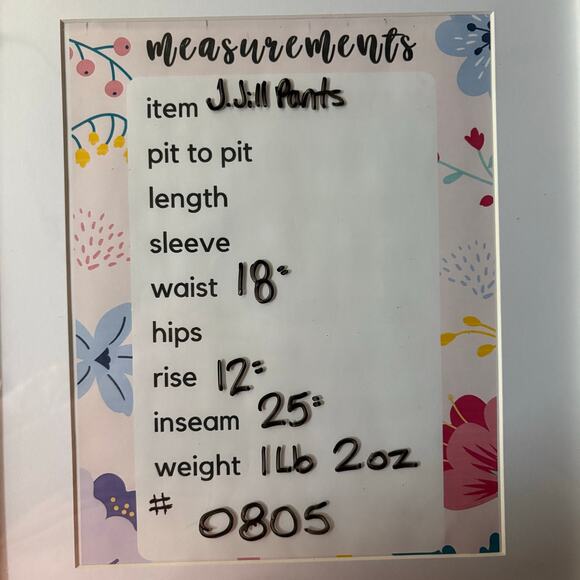 measurements
item J.Jill Pants
pit to pit
length
sleeve
waist 18"
hips
rise 12"
inseam 25"
weight 1Lb 2oz
# 0805